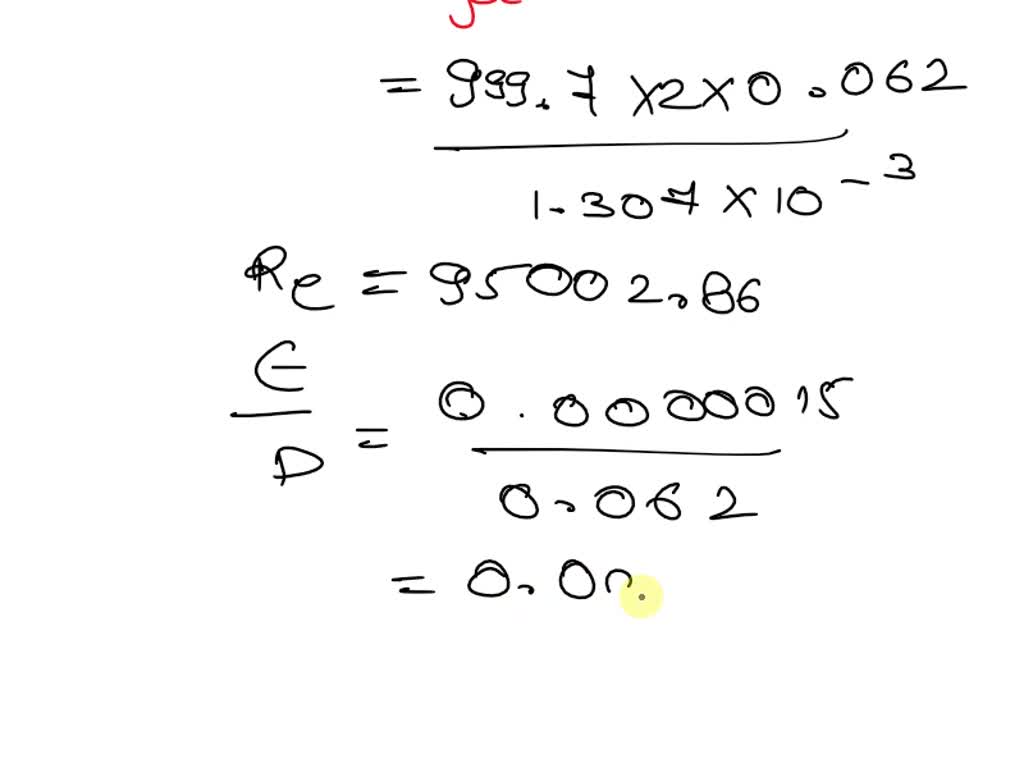 = 999.7 x2x0.062
1.307 x 10^-3
Re = 95002.86
ϵ
D
= 0.0000015
0.062
= 0.00